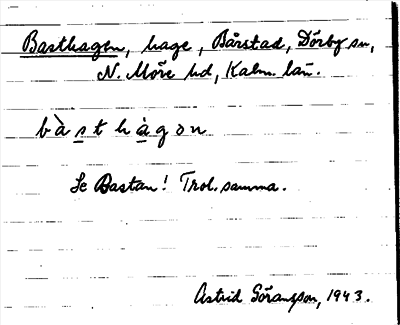 Basthagen, hage, Bårstad, Dörby sn,
N. Möre hd, Kalm. län.
bàsthàgon
Se Bastan! Trol. samma.
Astrid Göransson, 1943.